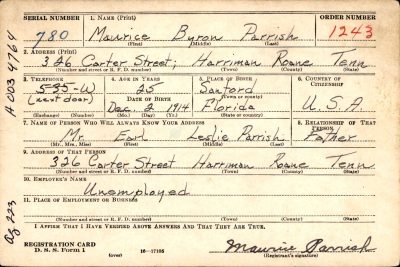 SERIAL NUMBER 1. NAME (Print) ORDER NUMBER
780 Maurice Byron Parrish 1243
(First) (Middle) (Last)
2. ADDRESS (Print)
326 Carter Street; Harriman Roane Tenn
(Number and street or R. F. D. number) (Town) (County) (State)
3. TELEPHONE 4. AGE IN YEARS 5. PLACE OF BIRTH 6. COUNTRY OF CITIZENSHIP
585-W 25 Sanford
(next door) DATE OF BIRTH (Town or county)
Dec. 2 1914 Florida U.S.A.
(Exchange) (Number) (Mo.) (Day) (Yr.) (State or country)
7. NAME OF PERSON WHO WILL ALWAYS KNOW YOUR ADDRESS 8. RELATIONSHIP OF THAT PERSON
Mr. Earl Leslie Parrish Father
(Mr., Mrs., Miss) (First) (Middle) (Last)
9. ADDRESS OF THAT PERSON
326 Carter Street Harriman Roane Tenn
(Number and street or R. F. D. number) (Town) (County) (State)
10. EMPLOYER'S NAME
Unemployed
11. PLACE OF EMPLOYMENT OR BUSINESS
(Number and street or R. F. D. number) (Town) (County) (State)
I AFFIRM THAT I HAVE VERIFIED ABOVE ANSWERS AND THAT THEY ARE TRUE.
REGISTRATION CARD
D. S. S. Form 1 (over) 16—17105 Maurice Parrish
(Registrant's signature)
A 003 4764